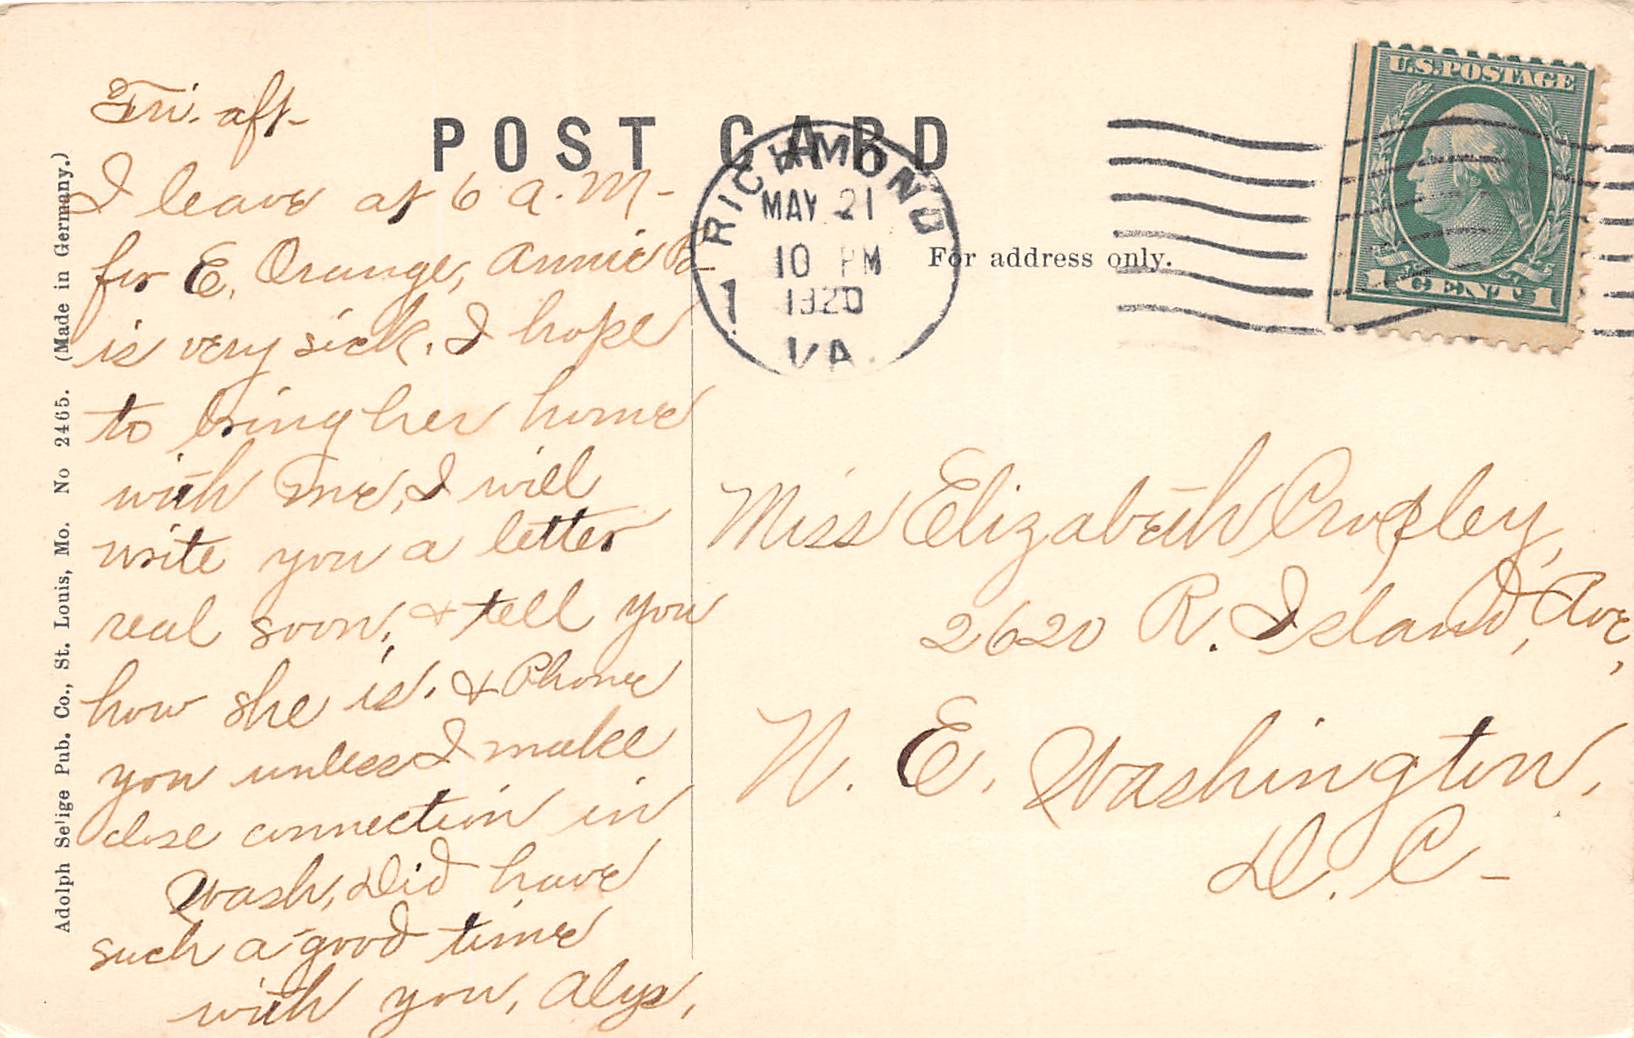 Fri. aft-
POST CARD
I leave at 6 a.m-
for E. Orange, Annie B
is very sick. I hope
to bring her home
with me, I will
write you a letter
real soon, & tell you
how she is. & Phone
you unless I make
close connection in
Wash, Did have
such a good time
with you, Alys,
RICHMOND
MAY 21
10 PM
1920
1
VA.
For address only.
U.S. POSTAGE
1 CENT 1
Miss Elizabeth Cropley,
2620 R. Island, Ave,
N. E. Washington,
D. C-
Adolph Selige Pub. Co., St. Louis, Mo. No 2465. (Made in Germany.)